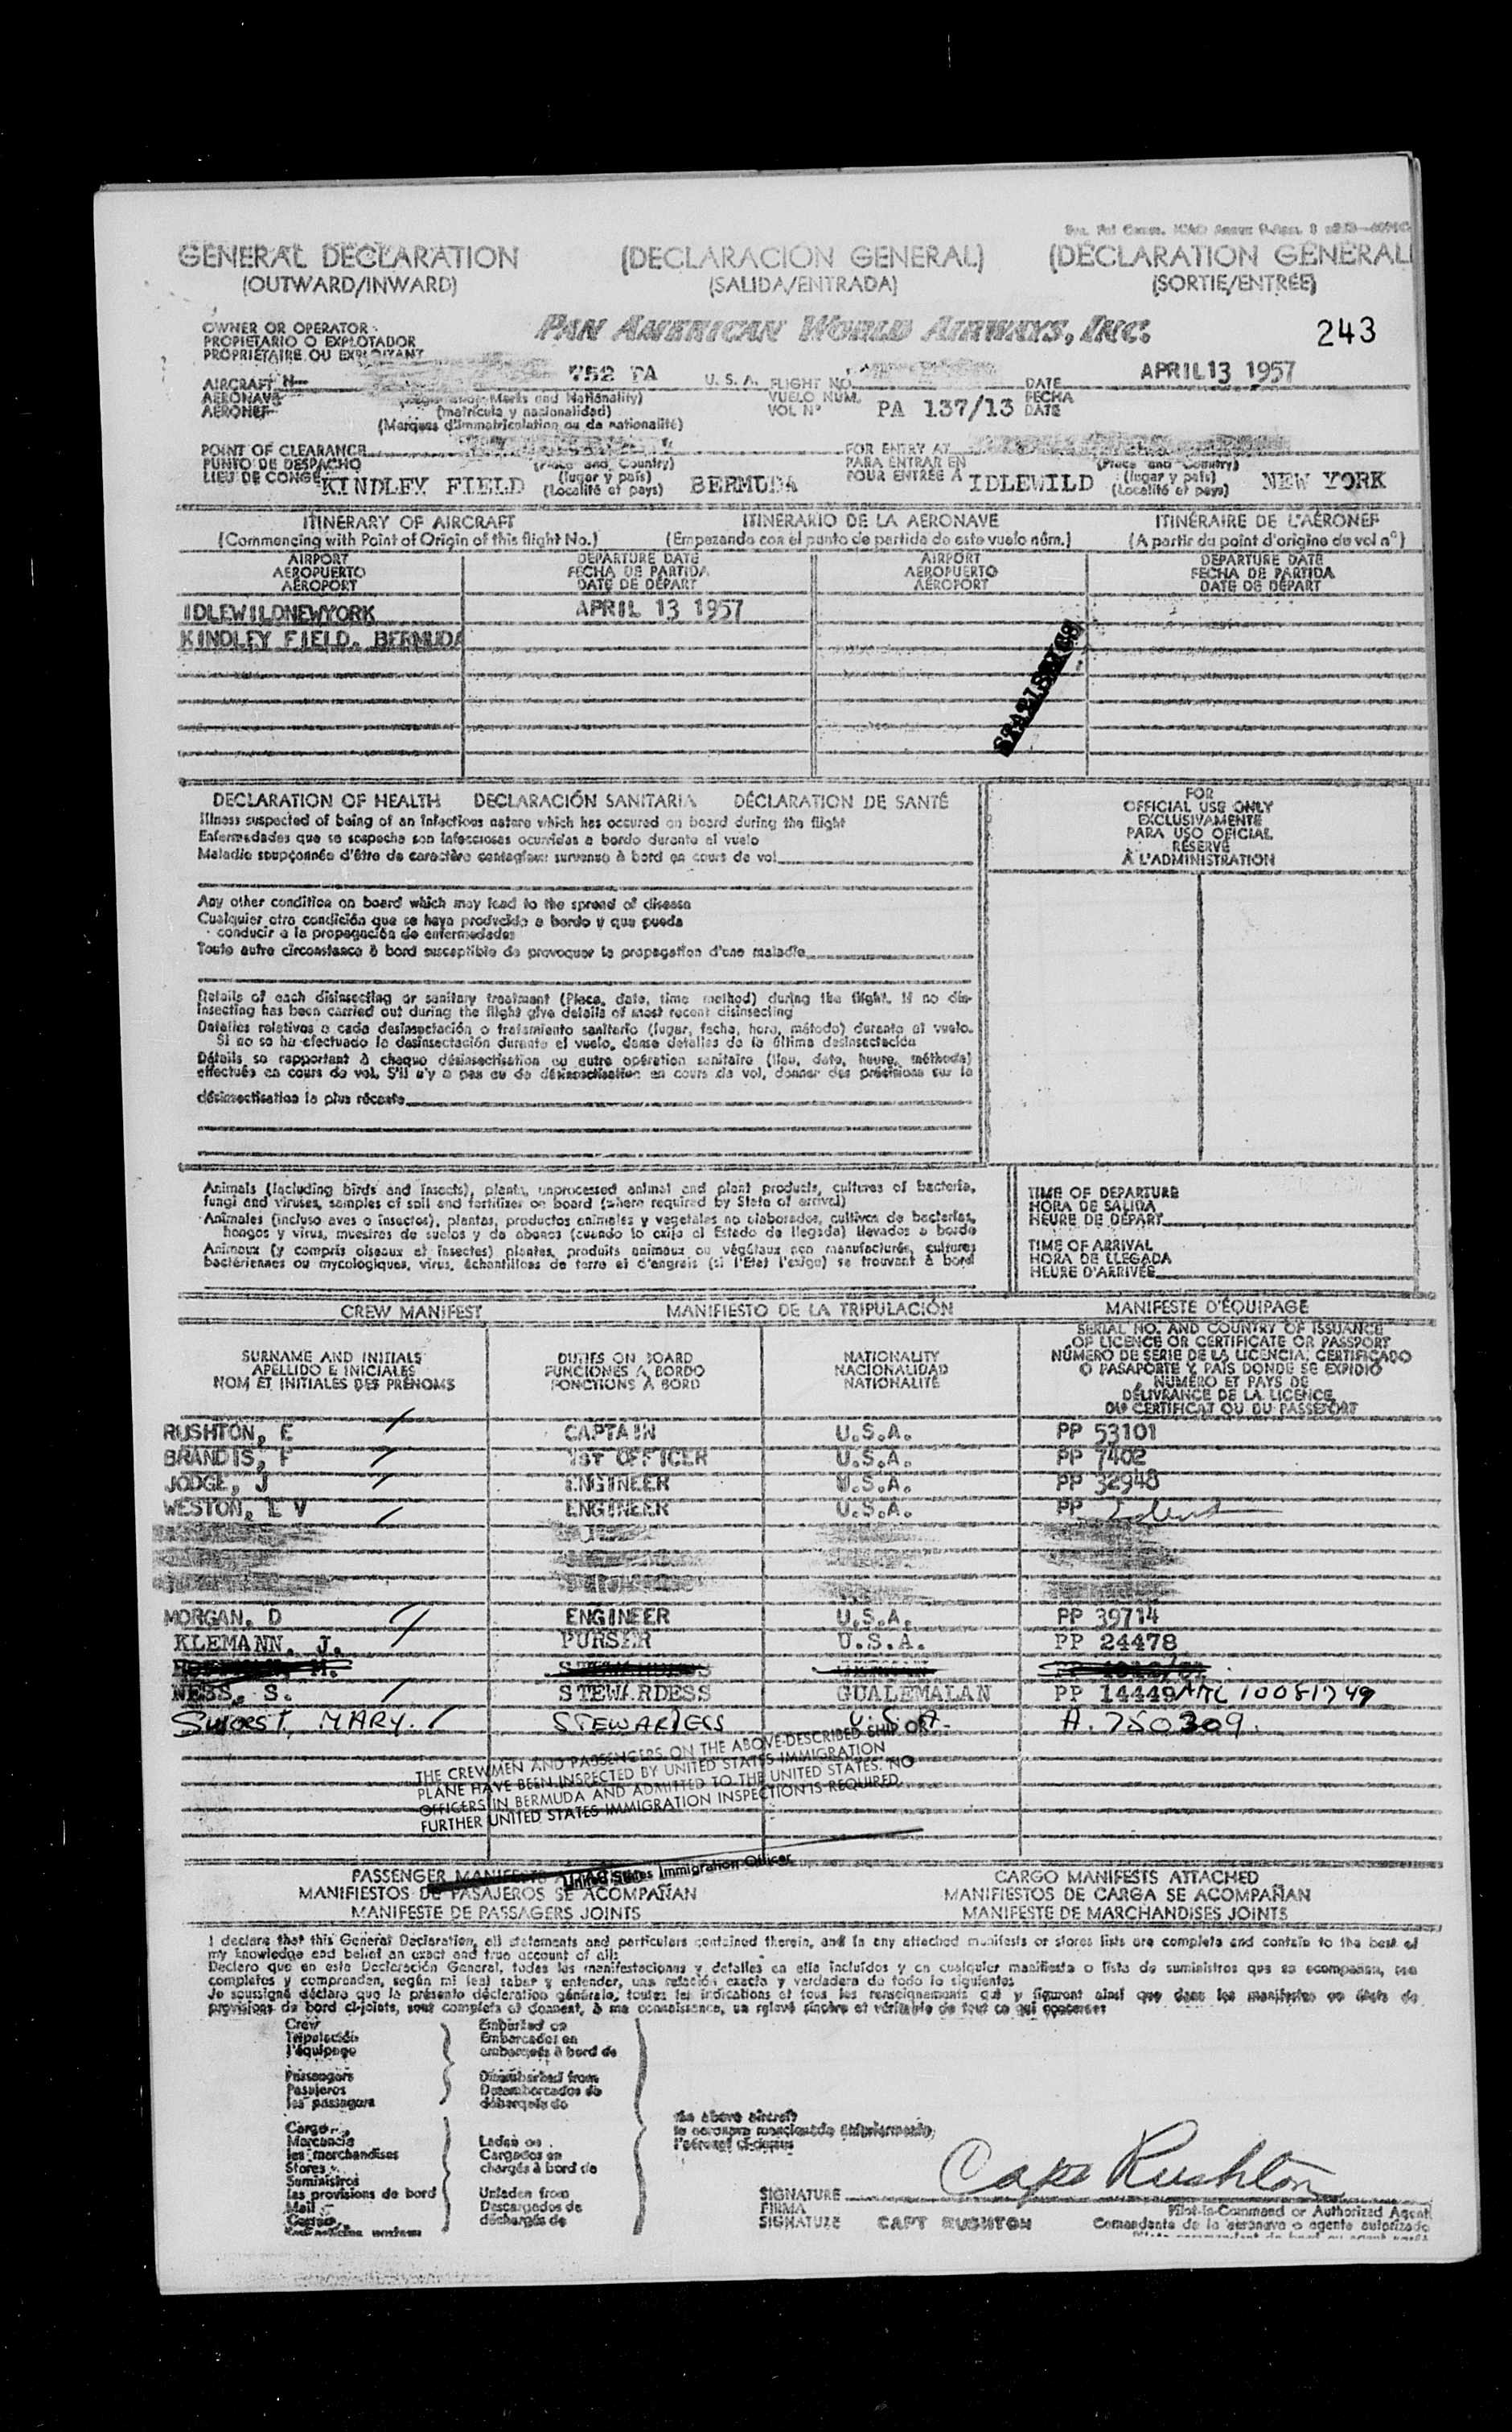 GENERAL DECLARATION (DECLARACION GENERAL) (DÉCLARATION GÉNÉRAL
(OUTWARD/INWARD) (SALIDA/ENTRADA) (SORTIE/ENTRÉE)
OWNER OR OPERATOR
PROPIETARIO O EXPLOTADOR
PROPRIÉTAIRE OU EXPLOITANT
PAN AMERICAN WORLD AIRWAYS, INC.
243
AIRCRAFT N 752 PA U.S.A. FLIGHT NO. DATE APRIL 13 1957
AERONAVE (Marks and Nationality) VUELO NUM. PA 137/13 FECHA
AÉRONEF (matrícula y nacionalidad) VOL Nº DATE
(Marques d'immatriculation ou de nationalité)
POINT OF CLEARANCE (Place and Country) FOR ENTRY AT (Place and Country)
PUNTO DE DESPACHO (lugar y país) PARA ENTRAR EN (lugar y país)
LIEU DE CONGÉ KINDLEY FIELD (Localité et pays) BERMUDA POUR ENTRÉE À IDLEWILD (Localité et pays) NEW YORK
ITINERARY OF AIRCRAFT ITINERARIO DE LA AERONAVE ITINÉRAIRE DE L'AÉRONEF
(Commencing with Point of Origin of this flight No.) (Empezando con el punto de partida de este vuelo núm.) (A partir du point d'origine du vol nº)
AIRPORT DEPARTURE DATE AIRPORT DEPARTURE DATE
AEROPUERTO FECHA DE PARTIDA AEROPUERTO FECHA DE PARTIDA
AÉROPORT DATE DE DÉPART AÉROPORT DATE DE DÉPART
IDLEWILDNEWYORK APRIL 13 1957
KINDLEY FIELD. BERMUDA
DECLARATION OF HEALTH DECLARACIÓN SANITARIA DÉCLARATION DE SANTÉ
Illness suspected of being of an infectious nature which has occured on board during the flight
Enfermedades que se sospecha son infecciosas ocurridas a bordo durante el vuelo
Maladie soupçonnée d'être de caractère contagieux survenue à bord en cours de vol
FOR
OFFICIAL USE ONLY
EXCLUSIVAMENTE
PARA USO OFICIAL
RÉSERVÉ
À L'ADMINISTRATION
Any other condition on board which may lead to the spread of disease
Cualquier otra condición que se haya producido a bordo y que pueda
conducir a la propagación de enfermedades
Toute autre circonstance à bord susceptible de provoquer la propagation d'une maladie
Details of each disinsecting or sanitary treatment (Place, date, time method) during the flight. If no dis-
insecting has been carried out during the flight give details of most recent disinsecting
Detalles relativos a cada desinsectación o tratamiento sanitario (lugar, fecha, hora, método) durante el vuelo.
Si no se ha efectuado la desinsectación durante el vuelo, dense detalles de la última desinsectación
Détails se rapportant à chaque désinsectisation ou autre opération sanitaire (lieu, date, heure, méthode)
effectués en cours de vol. S'il n'y a pas eu de désinsectisation en cours de vol, donner des précisions sur la
désinsectisation la plus récente
Animals (including birds and insects), plants, unprocessed animal and plant products, cultures of bacteria,
fungi and viruses, samples of soil and fertilizer on board (where required by State of arrival)
Animales (incluso aves o insectos), plantas, productos animales y vegetales no elaborados, cultivos de bacterias,
hongos y virus, muestras de suelos y de abonos (cuando lo exija el Estado de llegada) llevados a bordo
Animaux (y compris oiseaux et insectes) plantes, produits animaux ou végétaux non manufacturés, cultures
bactériennes ou mycologiques, virus, échantillons de terre et d'engrais (si l'Etat l'exige) se trouvant à bord
TIME OF DEPARTURE
HORA DE SALIDA
HEURE DE DÉPART
TIME OF ARRIVAL
HORA DE LLEGADA
HEURE D'ARRIVÉE
CREW MANIFEST MANIFIESTO DE LA TRIPULACIÓN MANIFESTE D'ÉQUIPAGE
SURNAME AND INITIALS
APELLIDO E INICIALES
NOM ET INITIALES DES PRÉNOMS
DUTIES ON BOARD
FUNCIONES A BORDO
FONCTIONS À BORD
NATIONALITY
NACIONALIDAD
NATIONALITÉ
SERIAL NO. AND COUNTRY OF ISSUANCE
OF LICENCE OR CERTIFICATE OR PASSPORT
NÚMERO DE SERIE DE LA LICENCIA, CERTIFICADO
O PASAPORTE Y PAÍS DONDE SE EXPIDIÓ
NUMÉRO ET PAYS DE
DÉLIVRANCE DE LA LICENCE
DU CERTIFICAT OU DU PASSEPORT
RUSHTON, E CAPTAIN U.S.A. PP 53101
BRANDIS, F 1ST OFFICER U.S.A. PP 7402
JODGE, J ENGINEER U.S.A. PP 32948
WESTON, L V ENGINEER U.S.A. PP
MORGAN, D ENGINEER U.S.A. PP 39714
KLEMANN, J. PURSER U.S.A. PP 24478
NESS, S. STEWARDESS GUALEMALAN PP 14449
SWORST, MARY. STEWARDESS U.S.A. A. 750309.
THE CREWMEN AND PASSENGERS ON THE ABOVE-DESCRIBED SHIP OR
PLANE HAVE BEEN INSPECTED BY UNITED STATES IMMIGRATION
OFFICERS IN BERMUDA AND ADMITTED TO THE UNITED STATES. NO
FURTHER UNITED STATES IMMIGRATION INSPECTION IS REQUIRED.
United States Immigration Officer
PASSENGER MANIFESTS CARGO MANIFESTS ATTACHED
MANIFIESTOS DE PASAJEROS SE ACOMPAÑAN MANIFIESTOS DE CARGA SE ACOMPAÑAN
MANIFESTE DE PASSAGERS JOINTS MANIFESTE DE MARCHANDISES JOINTS
I declare that this General Declaration, all statements and particulars contained therein, and in any attached manifests or stores lists are complete and contain to the best of
my knowledge and belief an exact and true account of all:
Declaro que en esta Declaración General, todas las manifestaciones y detalles en ella incluídos y en cualquier manifiesto o lista de suministros que se acompañan, son
completos y comprenden, según mi leal saber y entender, una relación exacta y verdadera de todo lo siguiente:
Je soussigné déclare que la présente déclaration générale, toutes les indications et tous les renseignements qui y figurent ainsi que dans les manifestes ou états de
provisions de bord ci-joints, sont complets et donnent, à ma connaissance, un relevé sincère et véritable de tout ce qui concerne:
Crew
Tripulación
l'équipage
Embarked on
Embarcados en
embarqués à bord de
Passengers
Pasajeros
les passagers
Disembarked from
Desembarcados de
débarqués de
Cargo
Mercancía
les marchandises
Stores
Suministros
les provisions de bord
Mail
Correo
Laden on
Cargados en
chargés à bord de
Unladen from
Descargados de
déchargés de
the above aircraft
la aeronave mencionada anteriormente
l'aéronef ci-dessus
Capt Rushton
SIGNATURE
FIRMA
SIGNATURE CAPT RUSHTON
Pilot-in-Command or Authorized Agent
Comandante de la aeronave o agente autorizado